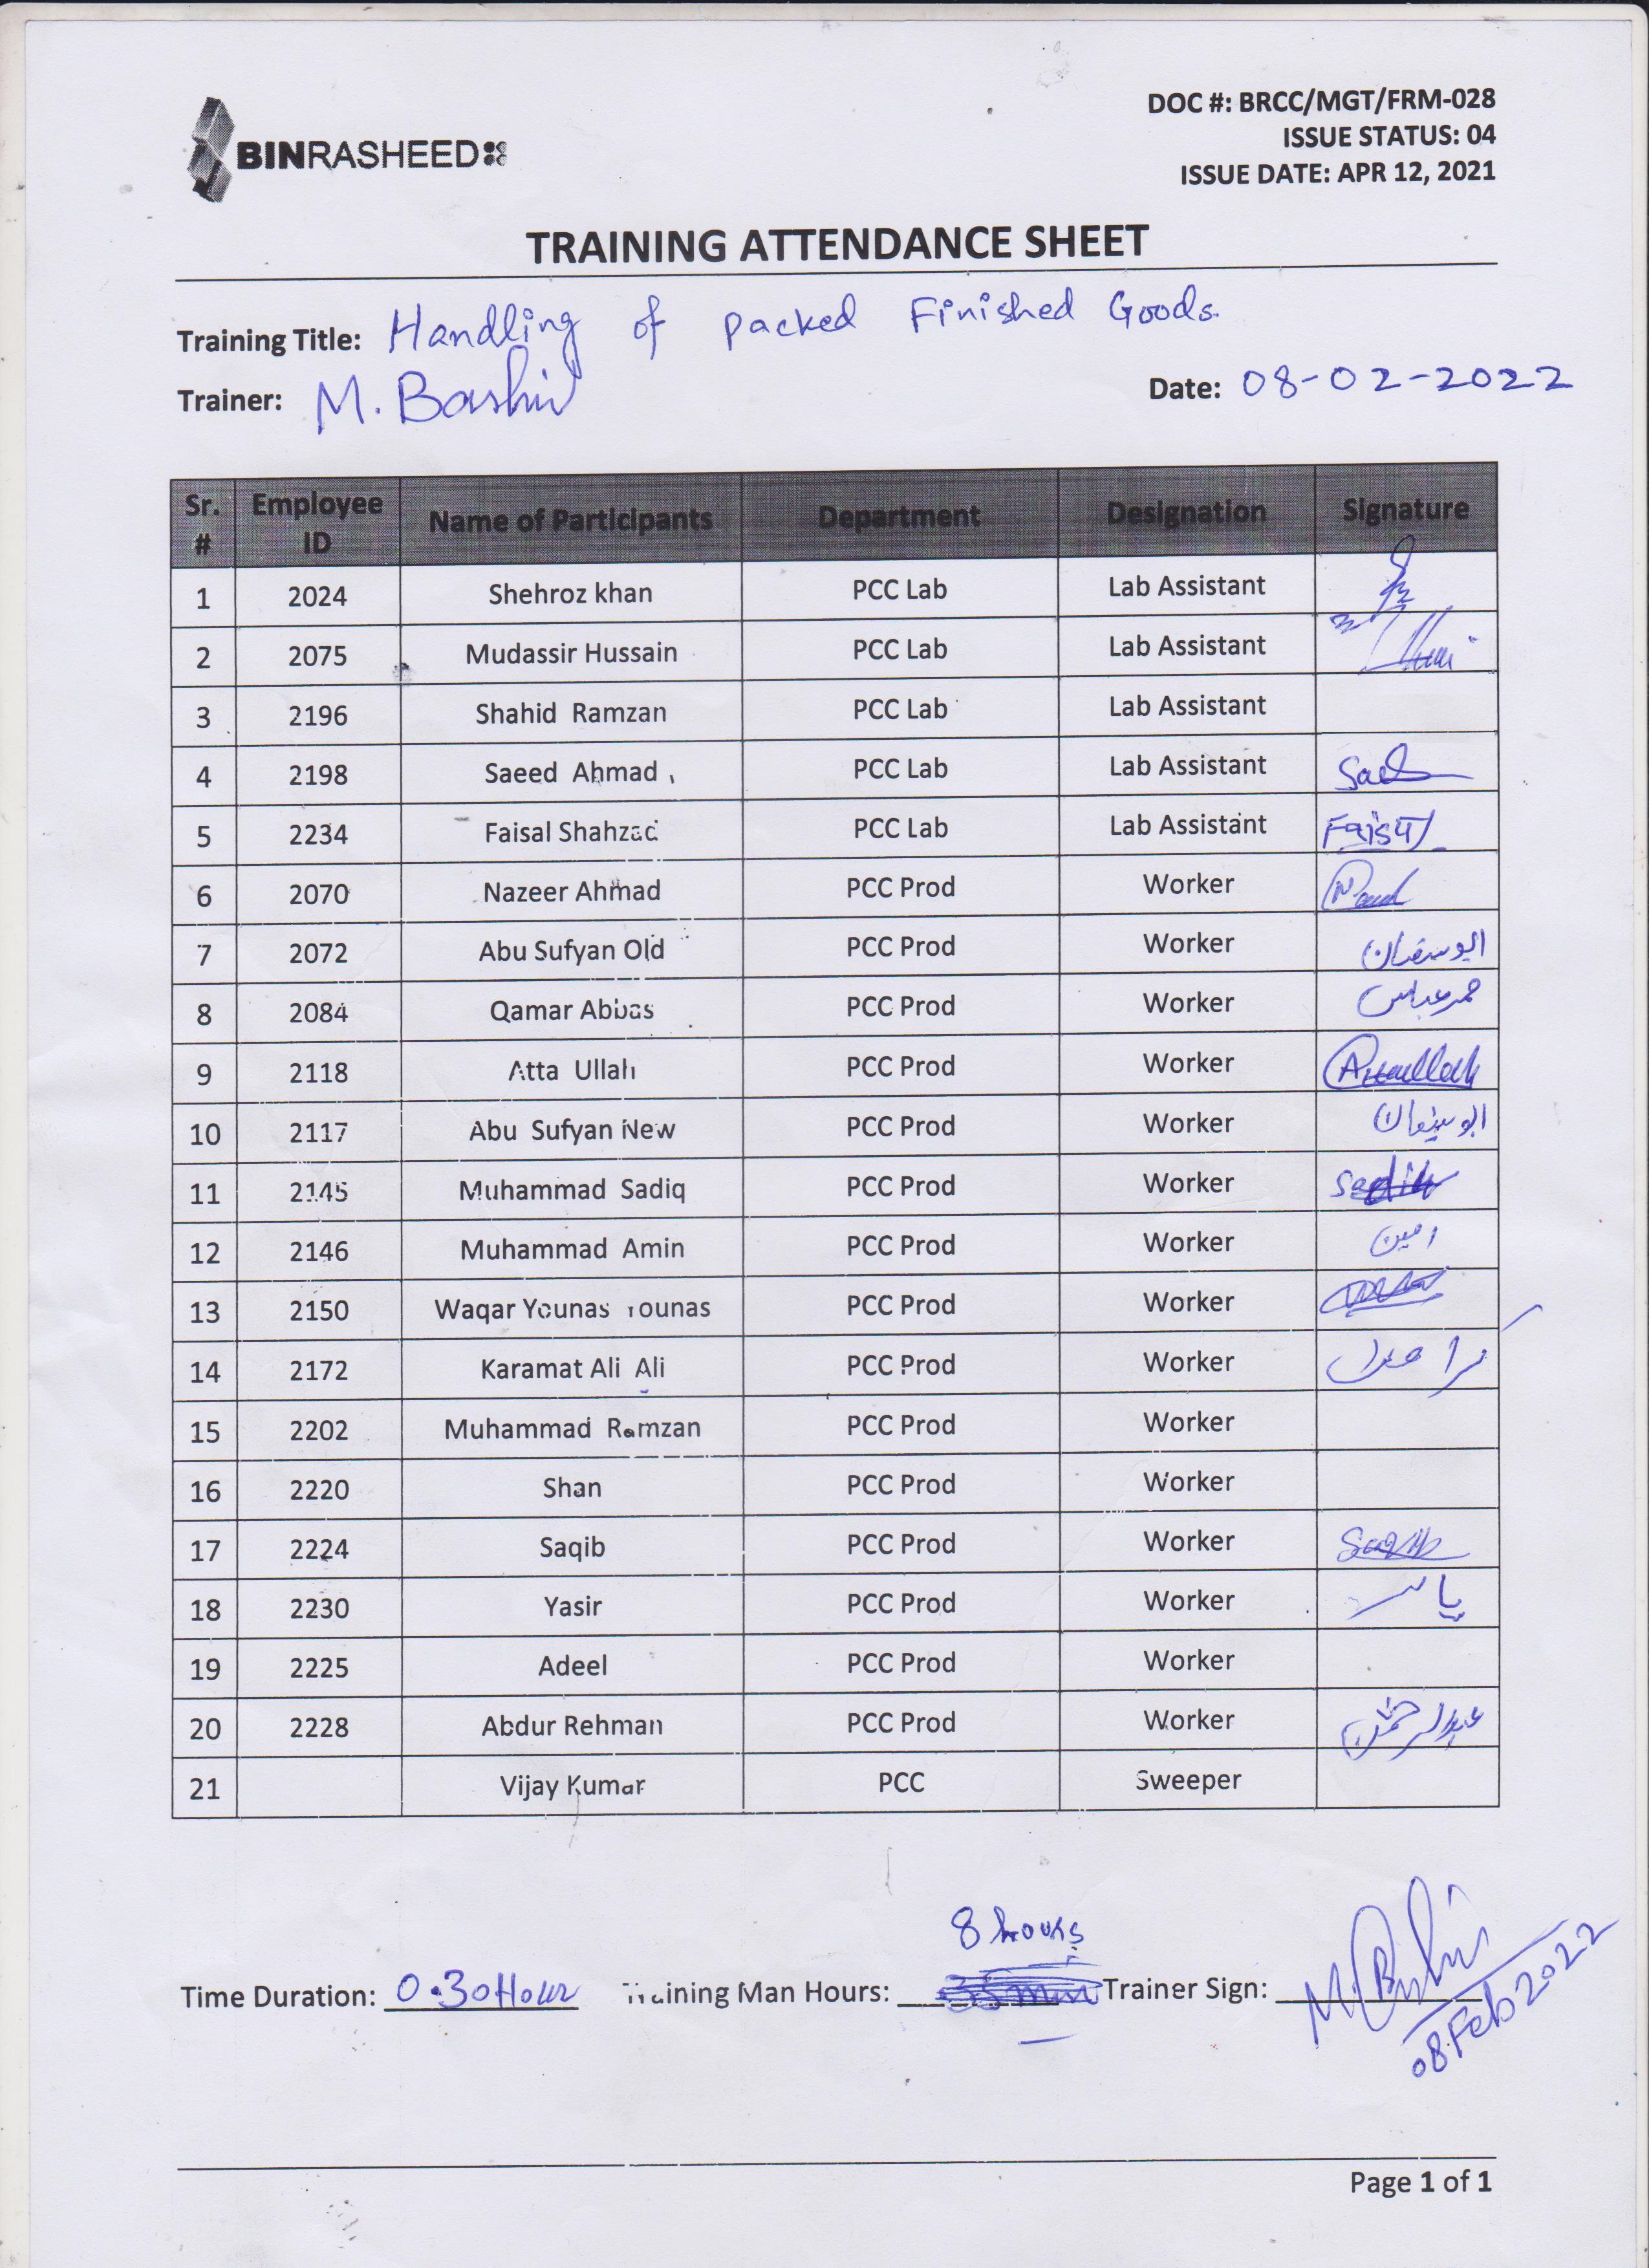 BINRASHEED
DOC #: BRCC/MGT/FRM-028
ISSUE STATUS: 04
ISSUE DATE: APR 12, 2021
TRAINING ATTENDANCE SHEET
Training Title: Handling of packed Finished Goods.
Trainer: M. Bashir
Date: 08-02-2022
Sr. # Employee ID Name of Participants Department Designation Signature
1 2024 Shehroz khan PCC Lab Lab Assistant
2 2075 Mudassir Hussain PCC Lab Lab Assistant
3 2196 Shahid Ramzan PCC Lab Lab Assistant
4 2198 Saeed Ahmad PCC Lab Lab Assistant
5 2234 Faisal Shahzad PCC Lab Lab Assistant Faisal
6 2070 Nazeer Ahmad PCC Prod Worker
7 2072 Abu Sufyan Old PCC Prod Worker ابوسفیان
8 2084 Qamar Abbas PCC Prod Worker قمرعباس
9 2118 Atta Ullah PCC Prod Worker Attaullah
10 2117 Abu Sufyan New PCC Prod Worker ابوسفیان
11 2145 Muhammad Sadiq PCC Prod Worker
12 2146 Muhammad Amin PCC Prod Worker امین
13 2150 Waqar Younas Younas PCC Prod Worker
14 2172 Karamat Ali Ali PCC Prod Worker
15 2202 Muhammad Ramzan PCC Prod Worker
16 2220 Shan PCC Prod Worker
17 2224 Saqib PCC Prod Worker Saqib
18 2230 Yasir PCC Prod Worker یاسر
19 2225 Adeel PCC Prod Worker
20 2228 Abdur Rehman PCC Prod Worker عبدالرحمٰن
21 Vijay Kumar PCC Sweeper
8 hours
Time Duration: 0.30 Hour Training Man Hours: 35 min Trainer Sign: M. Bashir
08 Feb 2022
Page 1 of 1